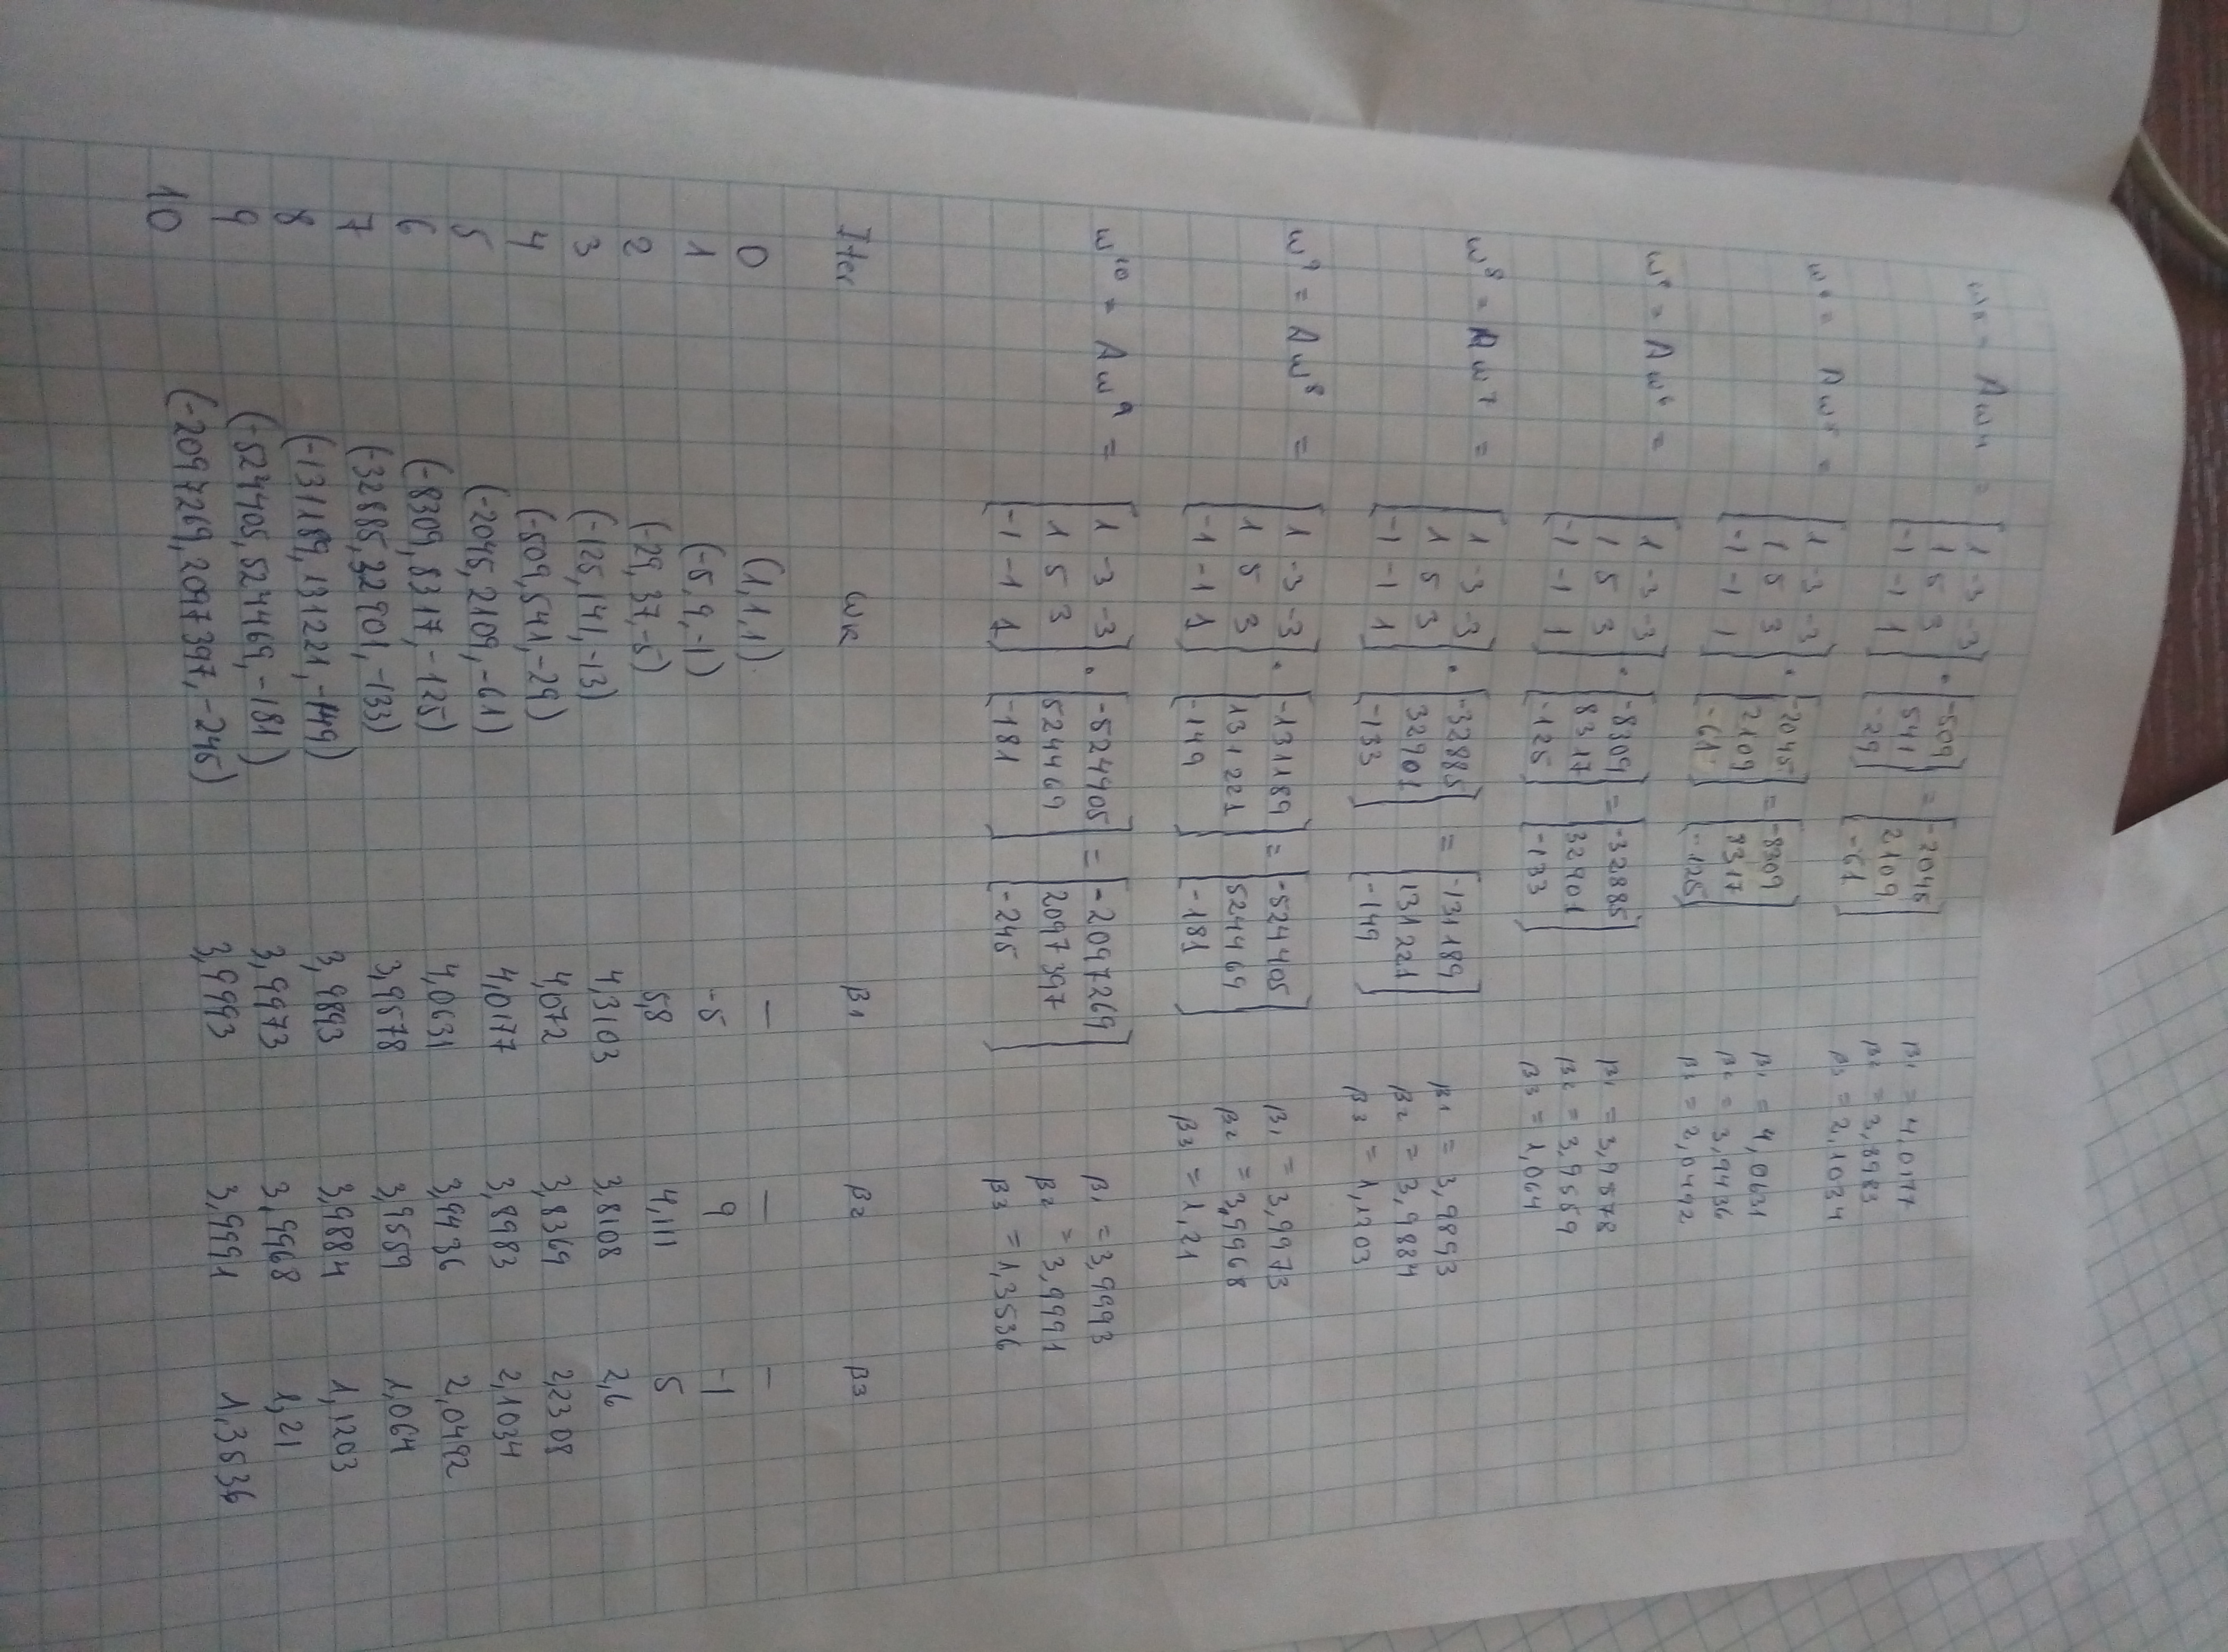 w5 = Aw4 = [1 -3 -3; 1 5 3; -1 -1 1] · [-509; 541; -29] = [-2045; 2109; -61] β1 = 4,0177 β2 = 3,8983 β3 = 2,1034
w6 = Aw5 = [1 -3 -3; 1 5 3; -1 -1 1] · [-2045; 2109; -61] = [-8309; 8317; -125] β1 = 4,0631 β2 = 3,9436 β3 = 2,0492
w7 = Aw6 = [1 -3 -3; 1 5 3; -1 -1 1] · [-8309; 8317; -125] = [-32885; 32901; -133] β1 = 3,9578 β2 = 3,9559 β3 = 1,064
w8 = Aw7 = [1 -3 -3; 1 5 3; -1 -1 1] · [-32885; 32901; -133] = [-131189; 131221; -149] β1 = 3,9893 β2 = 3,9884 β3 = 1,1203
w9 = Aw8 = [1 -3 -3; 1 5 3; -1 -1 1] · [-131189; 131221; -149] = [-524405; 524469; -181] β1 = 3,9973 β2 = 3,9968 β3 = 1,21
w10 = Aw9 = [1 -3 -3; 1 5 3; -1 -1 1] · [-524405; 524469; -181] = [-2097269; 2097397; -245] β1 = 3,9993 β2 = 3,9991 β3 = 1,3536
Iter ωk β1 β2 β3
0 (1,1,1) — — —
1 (-5,9,-1) -5 9 -1
2 (-29,37,-5) 5,8 4,111 5
3 (-125,141,-13) 4,3103 3,8108 2,6
4 (-509,541,-29) 4,072 3,8369 2,2308
5 (-2045,2109,-61) 4,0177 3,8983 2,1034
6 (-8309,8317,-125) 4,0631 3,9436 2,0492
7 (-32885,32901,-133) 3,9578 3,9559 1,064
8 (-131189,131221,-149) 3,9893 3,9884 1,1203
9 (-524405,524469,-181) 3,9973 3,9968 1,21
10 (-2097269,2097397,-245) 3,9993 3,9991 1,3536